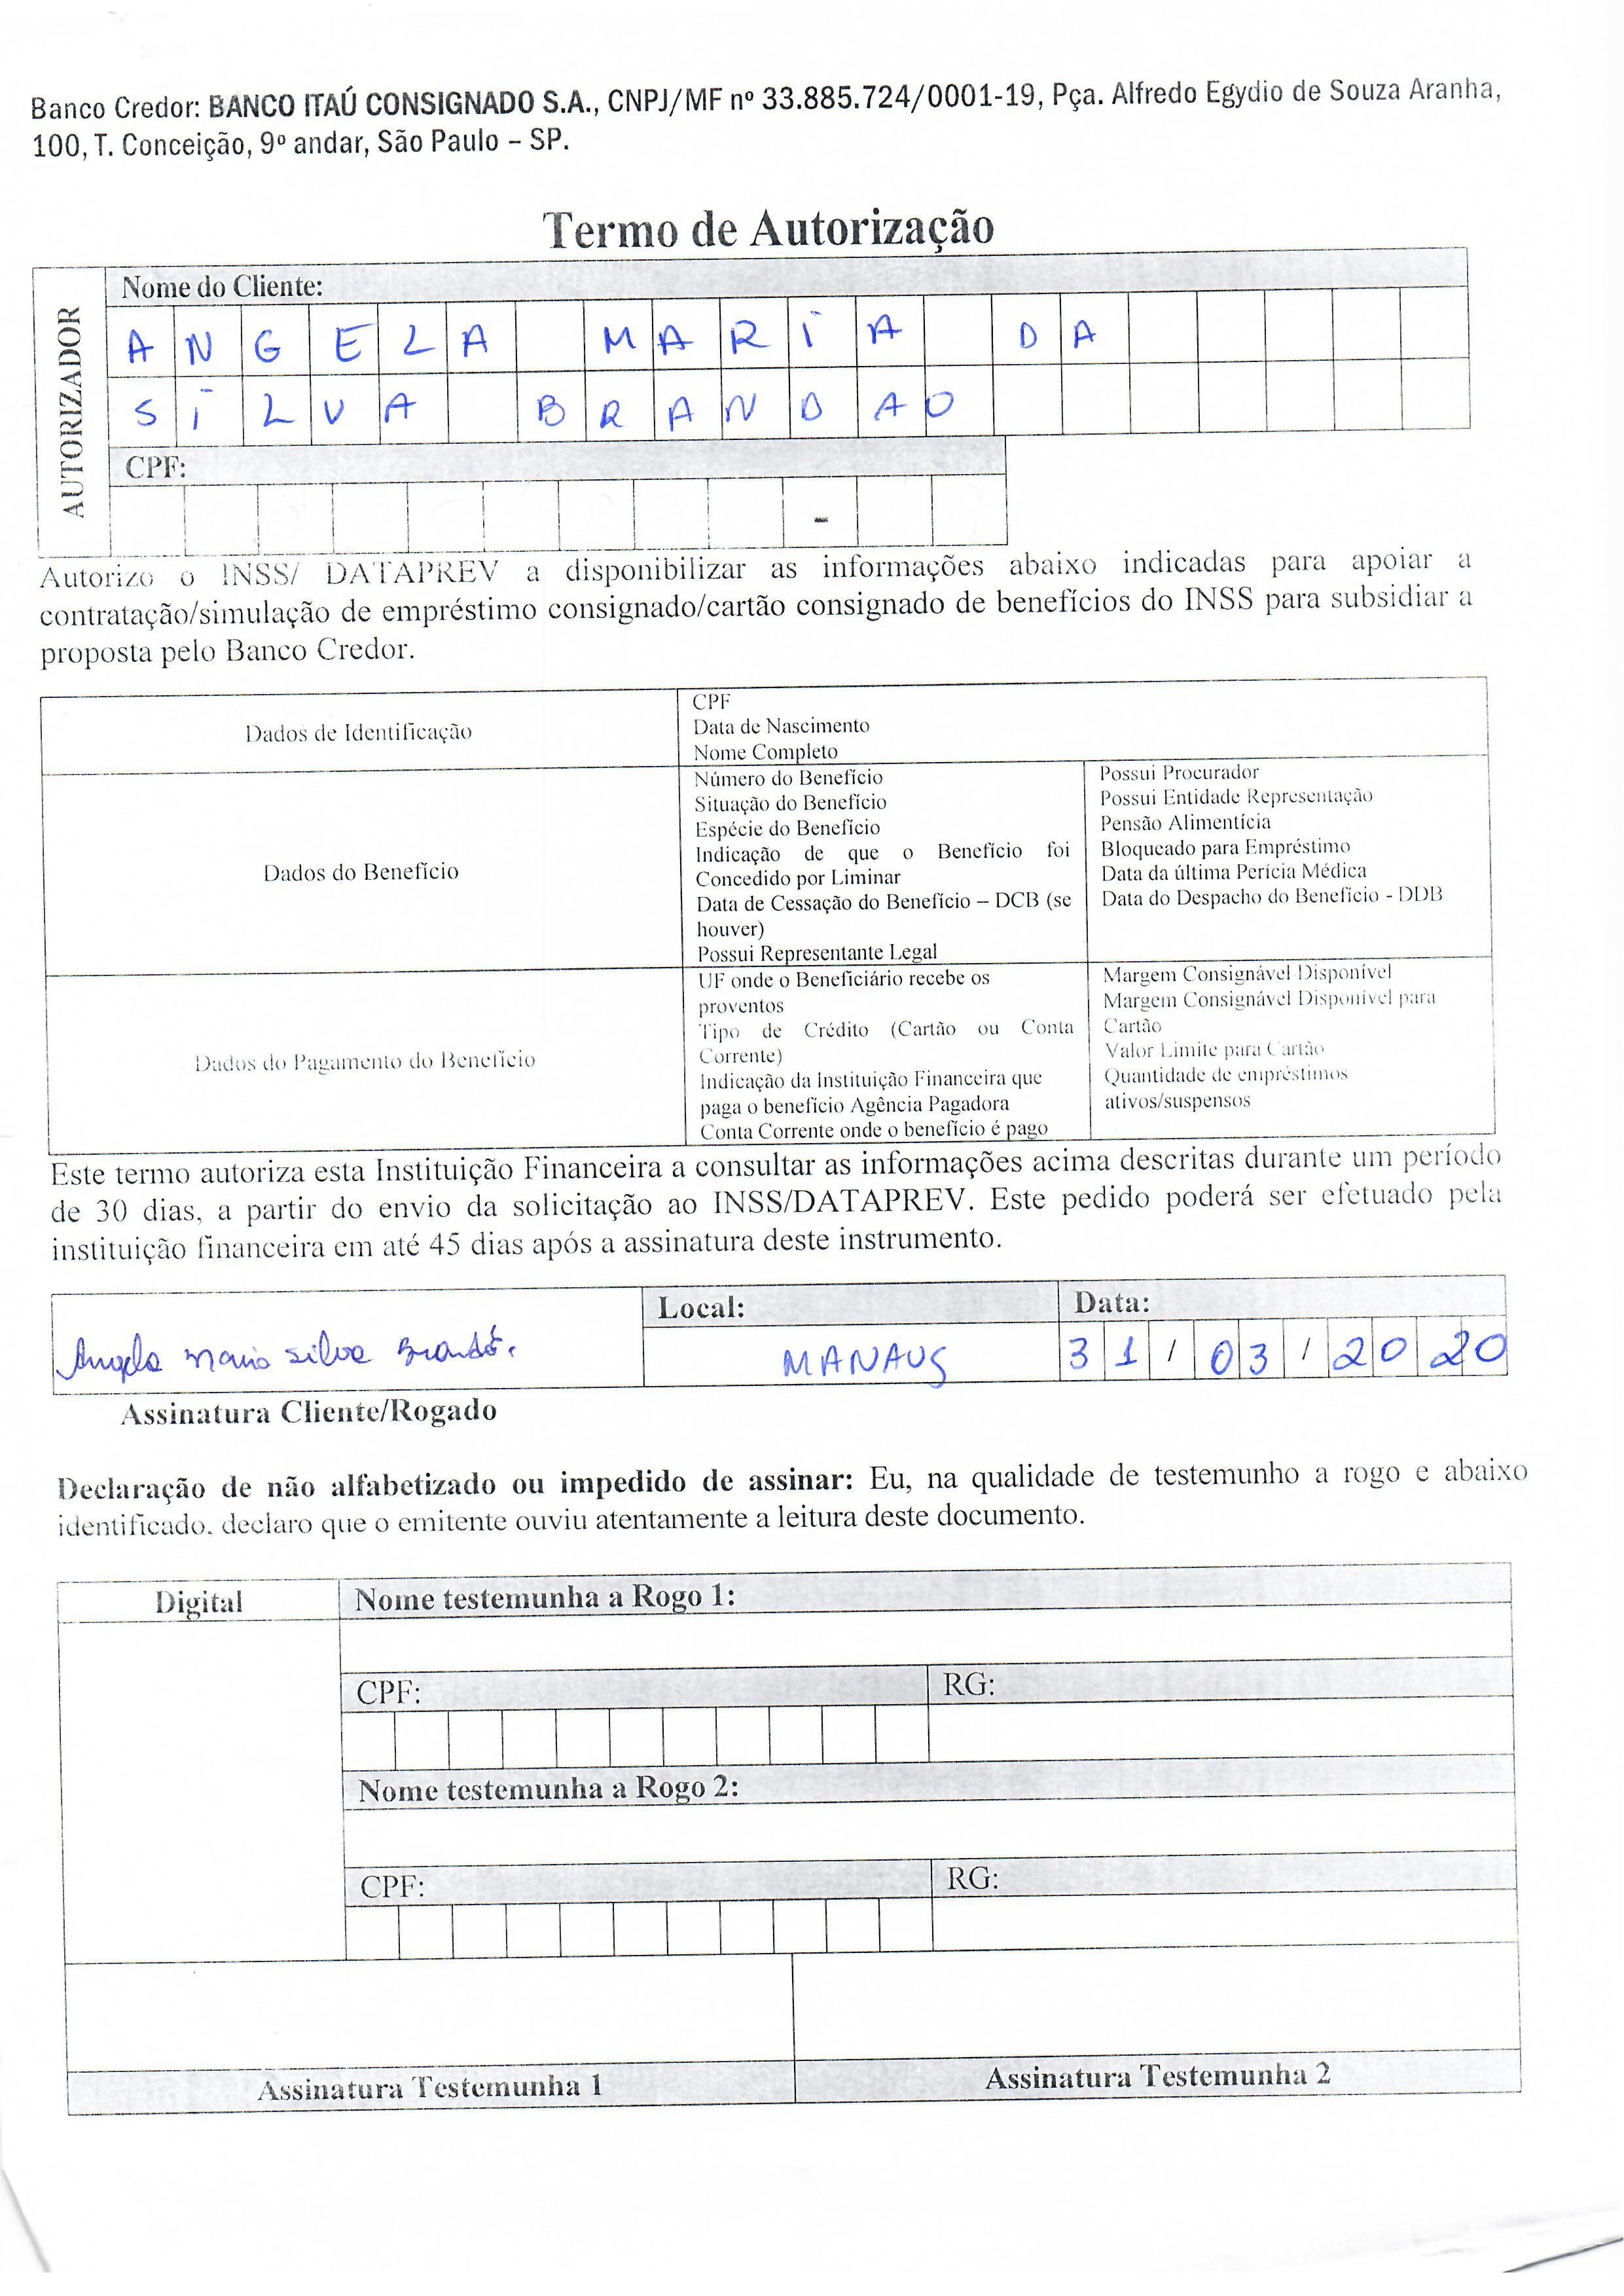 Banco Credor: BANCO ITAÚ CONSIGNADO S.A., CNPJ/MF nº 33.885.724/0001-19, Pça. Alfredo Egydio de Souza Aranha,
100, T. Conceição, 9º andar, São Paulo – SP.
Termo de Autorização
AUTORIZADOR
Nome do Cliente:
ANGELA MARIA DA
SILVA BRANDAO
CPF:
-
Autorizo o INSS/ DATAPREV a disponibilizar as informações abaixo indicadas para apoiar a
contratação/simulação de empréstimo consignado/cartão consignado de benefícios do INSS para subsidiar a
proposta pelo Banco Credor.
Dados de Identificação
CPF
Data de Nascimento
Nome Completo
Dados do Benefício
Número do Benefício
Situação do Benefício
Espécie do Benefício
Indicação de que o Benefício foi
Concedido por Liminar
Data de Cessação do Benefício – DCB (se
houver)
Possui Representante Legal
Possui Procurador
Possui Entidade Representação
Pensão Alimentícia
Bloqueado para Empréstimo
Data da última Perícia Médica
Data do Despacho do Benefício - DDB
Dados do Pagamento do Benefício
UF onde o Beneficiário recebe os
proventos
Tipo de Crédito (Cartão ou Conta
Corrente)
Indicação da Instituição Financeira que
paga o benefício Agência Pagadora
Conta Corrente onde o benefício é pago
Margem Consignável Disponível
Margem Consignável Disponível para
Cartão
Valor Limite para Cartão
Quantidade de empréstimos
ativos/suspensos
Este termo autoriza esta Instituição Financeira a consultar as informações acima descritas durante um período
de 30 dias, a partir do envio da solicitação ao INSS/DATAPREV. Este pedido poderá ser efetuado pela
instituição financeira em até 45 dias após a assinatura deste instrumento.
Local:
Data:
Angela Maria Silva Brandão.
MANAUS
31/03/2020
Assinatura Cliente/Rogado
Declaração de não alfabetizado ou impedido de assinar: Eu, na qualidade de testemunho a rogo e abaixo
identificado, declaro que o emitente ouviu atentamente a leitura deste documento.
Digital
Nome testemunha a Rogo 1:
CPF:
RG:
Nome testemunha a Rogo 2:
CPF:
RG:
Assinatura Testemunha 1
Assinatura Testemunha 2